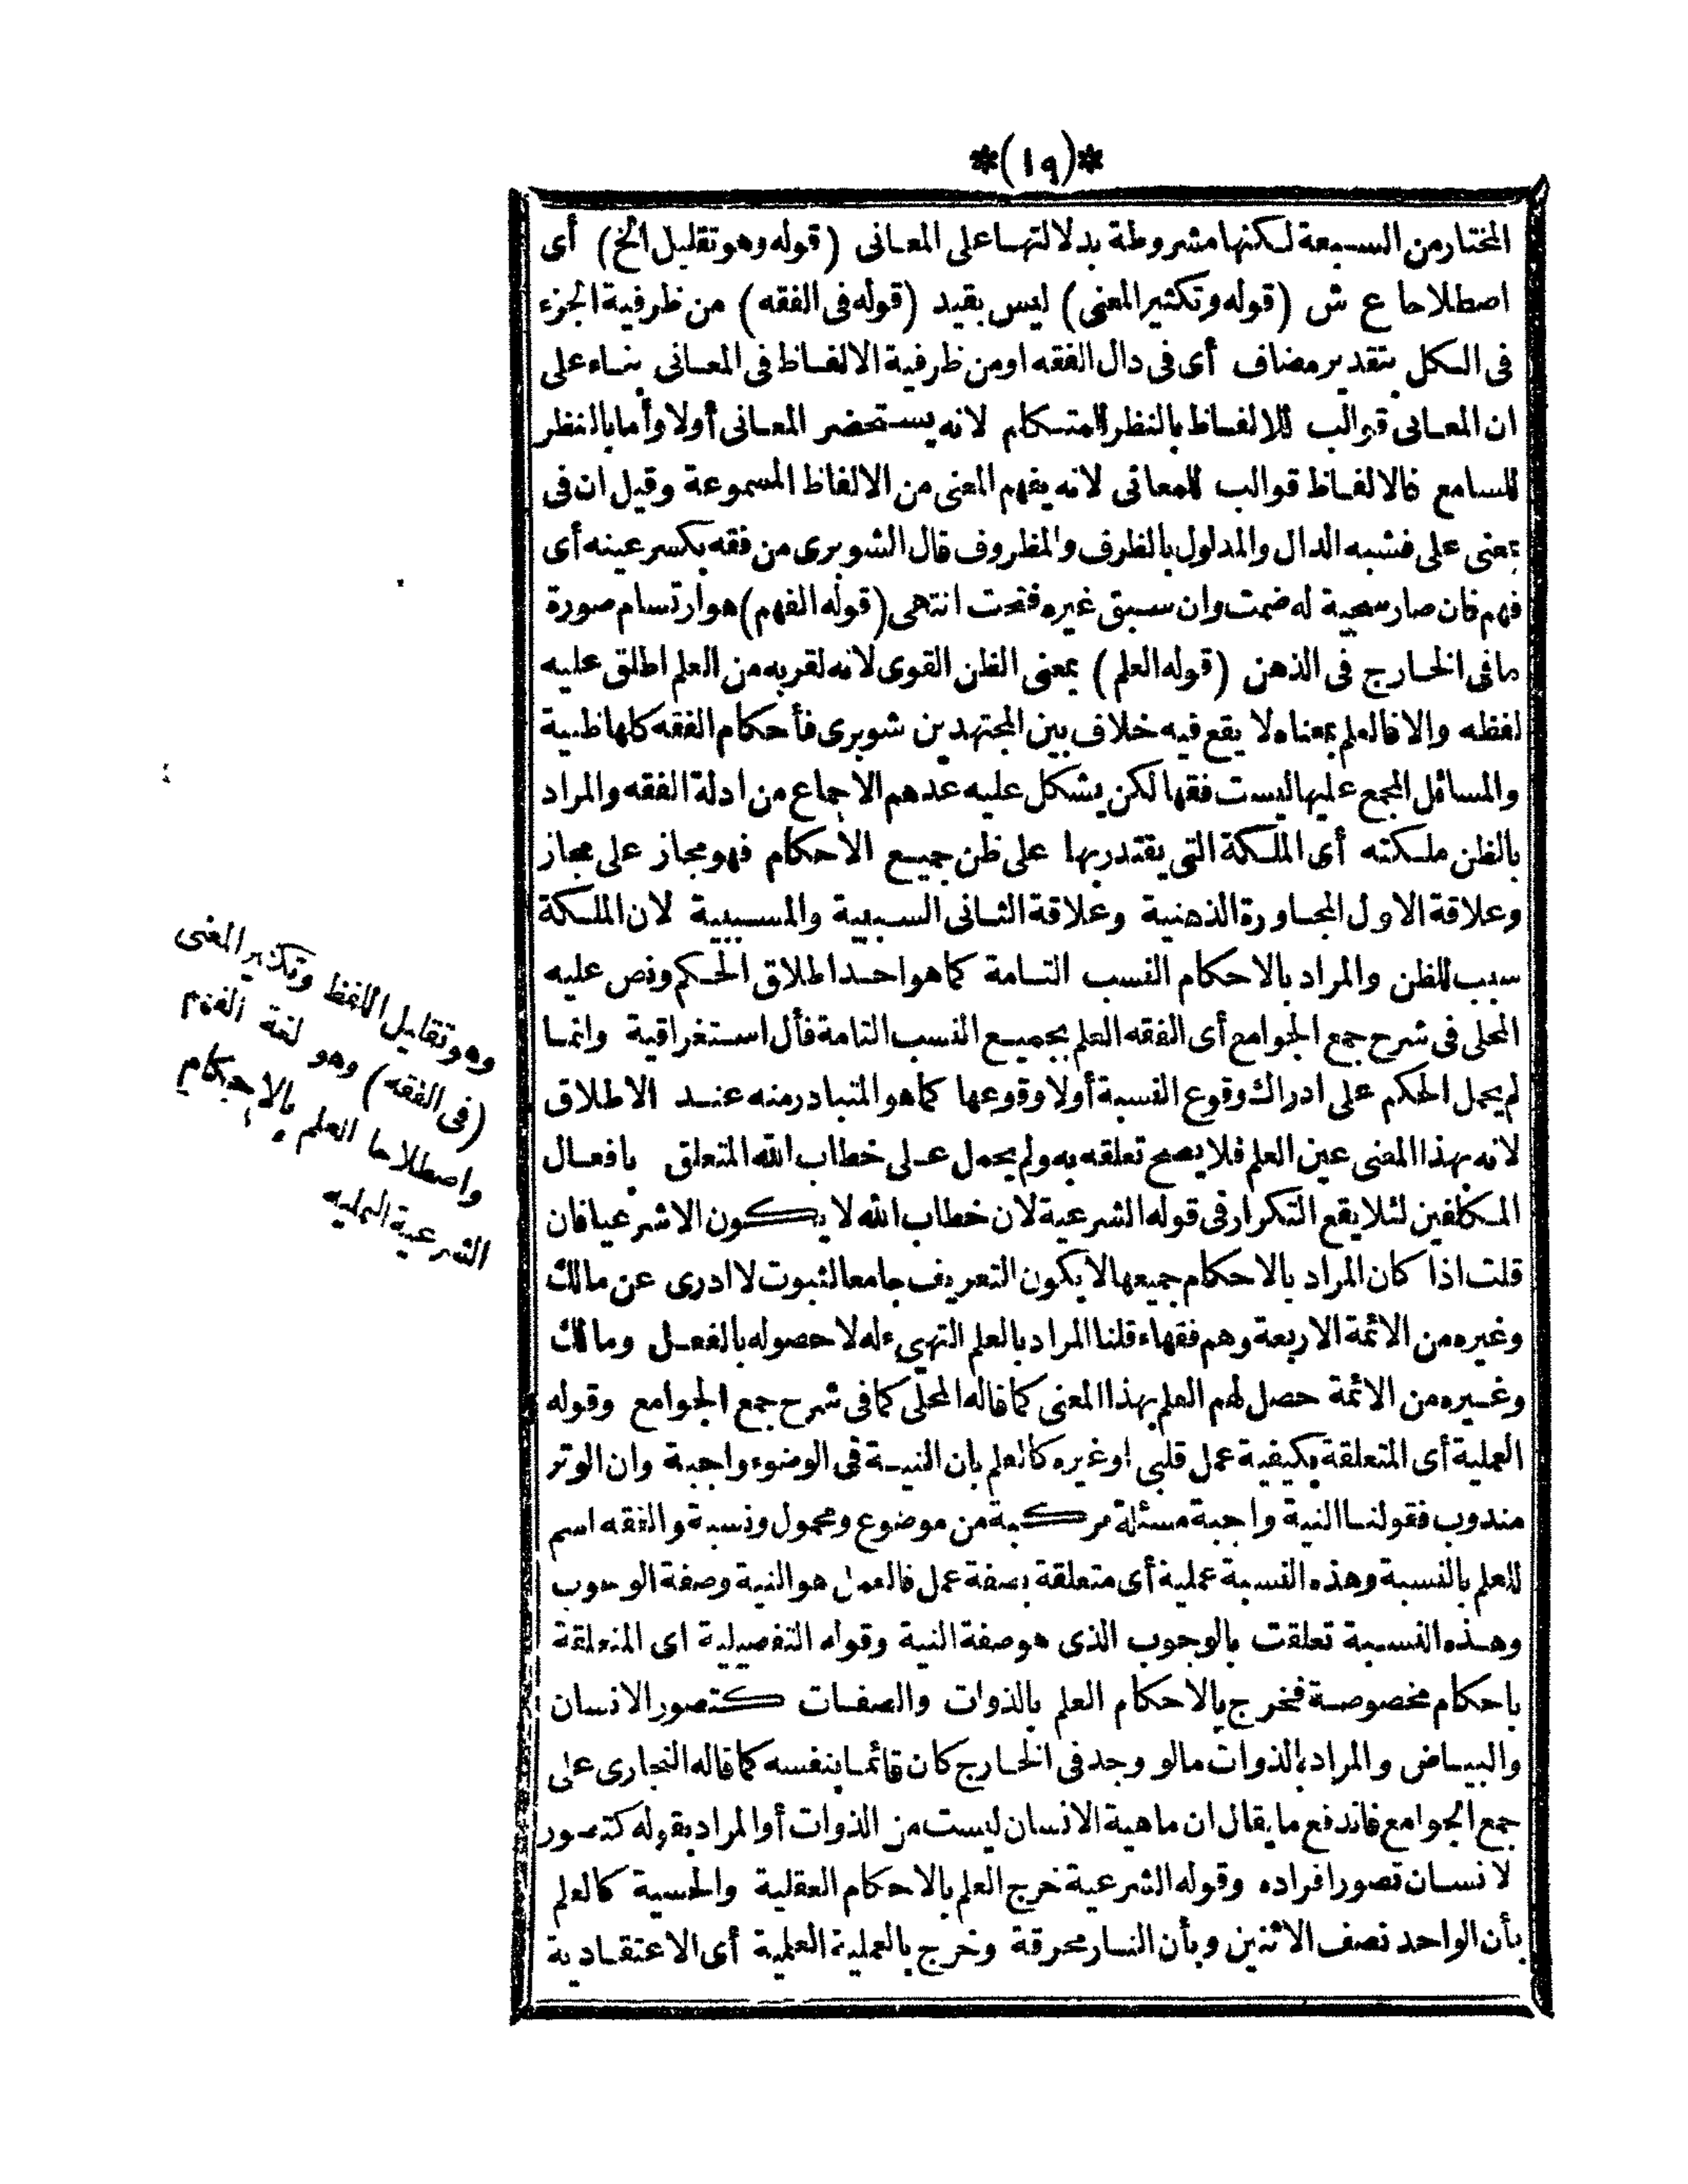 *(١٩)*
المختار من السبعة لكنها مشروطة بدلالتها على المعانى (قوله وهو تقليل الخ) أى
اصطلاحا ع ش (قوله وتكثير المعنى) ليس بقيد (قوله فى الفقه) من ظرفية الجزء
فى الكل بتقدير مضاف أى فى دال الفقه او من ظرفية الالفاظ فى المعانى بناء على
ان المعانى قوالب للالفاظ بالنظر للمتكلم لانه يستحضر المعانى أولا وأما بالنظر
للسامع فالالفاظ قوالب للمعانى لانه يفهم المعنى من الالفاظ المسموعة وقيل ان فى
بمعنى على فشبه الدال والمدلول بالظرف والمظروف قال الشوبرى من فقه بكسر عينه أى
فهم فان صار سجية له ضمت وان سبق غيره فتحت انتهى (قوله الفهم) هو ارتسام صورة
ما فى الخارج فى الذهن (قوله العلم) بمعنى الظن القوى لانه لقربه من العلم اطلق عليه
لفظه والا فالعلم بمعناه لا يقع فيه خلاف بين المجتهدين شوبرى فأحكام الفقه كلها ظنية
والمسائل المجمع عليها ليست فقها لكن يشكل عليه عدهم الاجماع من ادلة الفقه والمراد
بالظن ملكته أى الملكة التى يقتدر بها على ظن جميع الأحكام فهو مجاز على مجاز
وعلاقة الاول المجاورة الذهنية وعلاقة الثانى السببية والمسببية لان الملكة
سبب للظن والمراد بالاحكام النسب التامة كما هو احد اطلاق الحكم ونص عليه
المحلى فى شرح جمع الجوامع أى الفقه العلم بجميع النسب التامة فأل استغراقية وانما
لم يحمل الحكم على ادراك وقوع النسبة أولا وقوعها كما هو المتبادر منه عند الاطلاق
لانه بهذا المعنى عين العلم فلا يصح تعلقه به ولم يحمل على خطاب الله المتعلق بافعال
المكلفين لئلا يقع التكرار فى قوله الشرعية لان خطاب الله لا يكون الا شرعيا فان
قلت اذا كان المراد بالاحكام جميعها لا يكون التعريف جامعا لثبوت لا ادرى عن مالك
وغيره من الائمة الاربعة وهم فقهاء قلنا المراد بالعلم التهىء له لا حصوله بالفعل ومالك
وغيره من الائمة حصل لهم العلم بهذا المعنى كما قاله المحلى كما فى شرح جمع الجوامع وقوله
العملية أى المتعلقة بكيفية عمل قلبى اوغيره كالعلم بان النية فى الوضوء واجبة وان الوتر
مندوب فقولنا النية واجبة مسئلة مركبة من موضوع ومحمول ونسبة والفقه اسم
للعلم بالنسبة وهذه النسبة عملية أى متعلقة بصفة عمل فالعمل هو النية وصفة الوجوب
وهذه النسبة تعلقت بالوجوب الذى هو صفة النية وقوله التفصيلية اى المتعلقة
باحكام مخصوصة فخرج بالاحكام العلم بالذوات والصفات كتصور الانسان
والبياض والمراد بالذوات مالو وجد فى الخارج كان قائما بنفسه كما قاله النجارى على
جمع الجوامع فاندفع ما يقال ان ماهية الانسان ليست من الذوات أو المراد بقوله كتصور
لانسان تصور افراده وقوله الشرعية خرج العلم بالاحكام العقلية والحسية كالعلم
بأن الواحد نصف الاثنين وبأن النار محرقة وخرج بالعملية العلمية أى الاعتقادية
وهو تقليل اللفظ وتكثير المعنى
(فى الفقه) وهو لغة الفهم
واصطلاحا العلم بالاحكام
الشرعية العملية